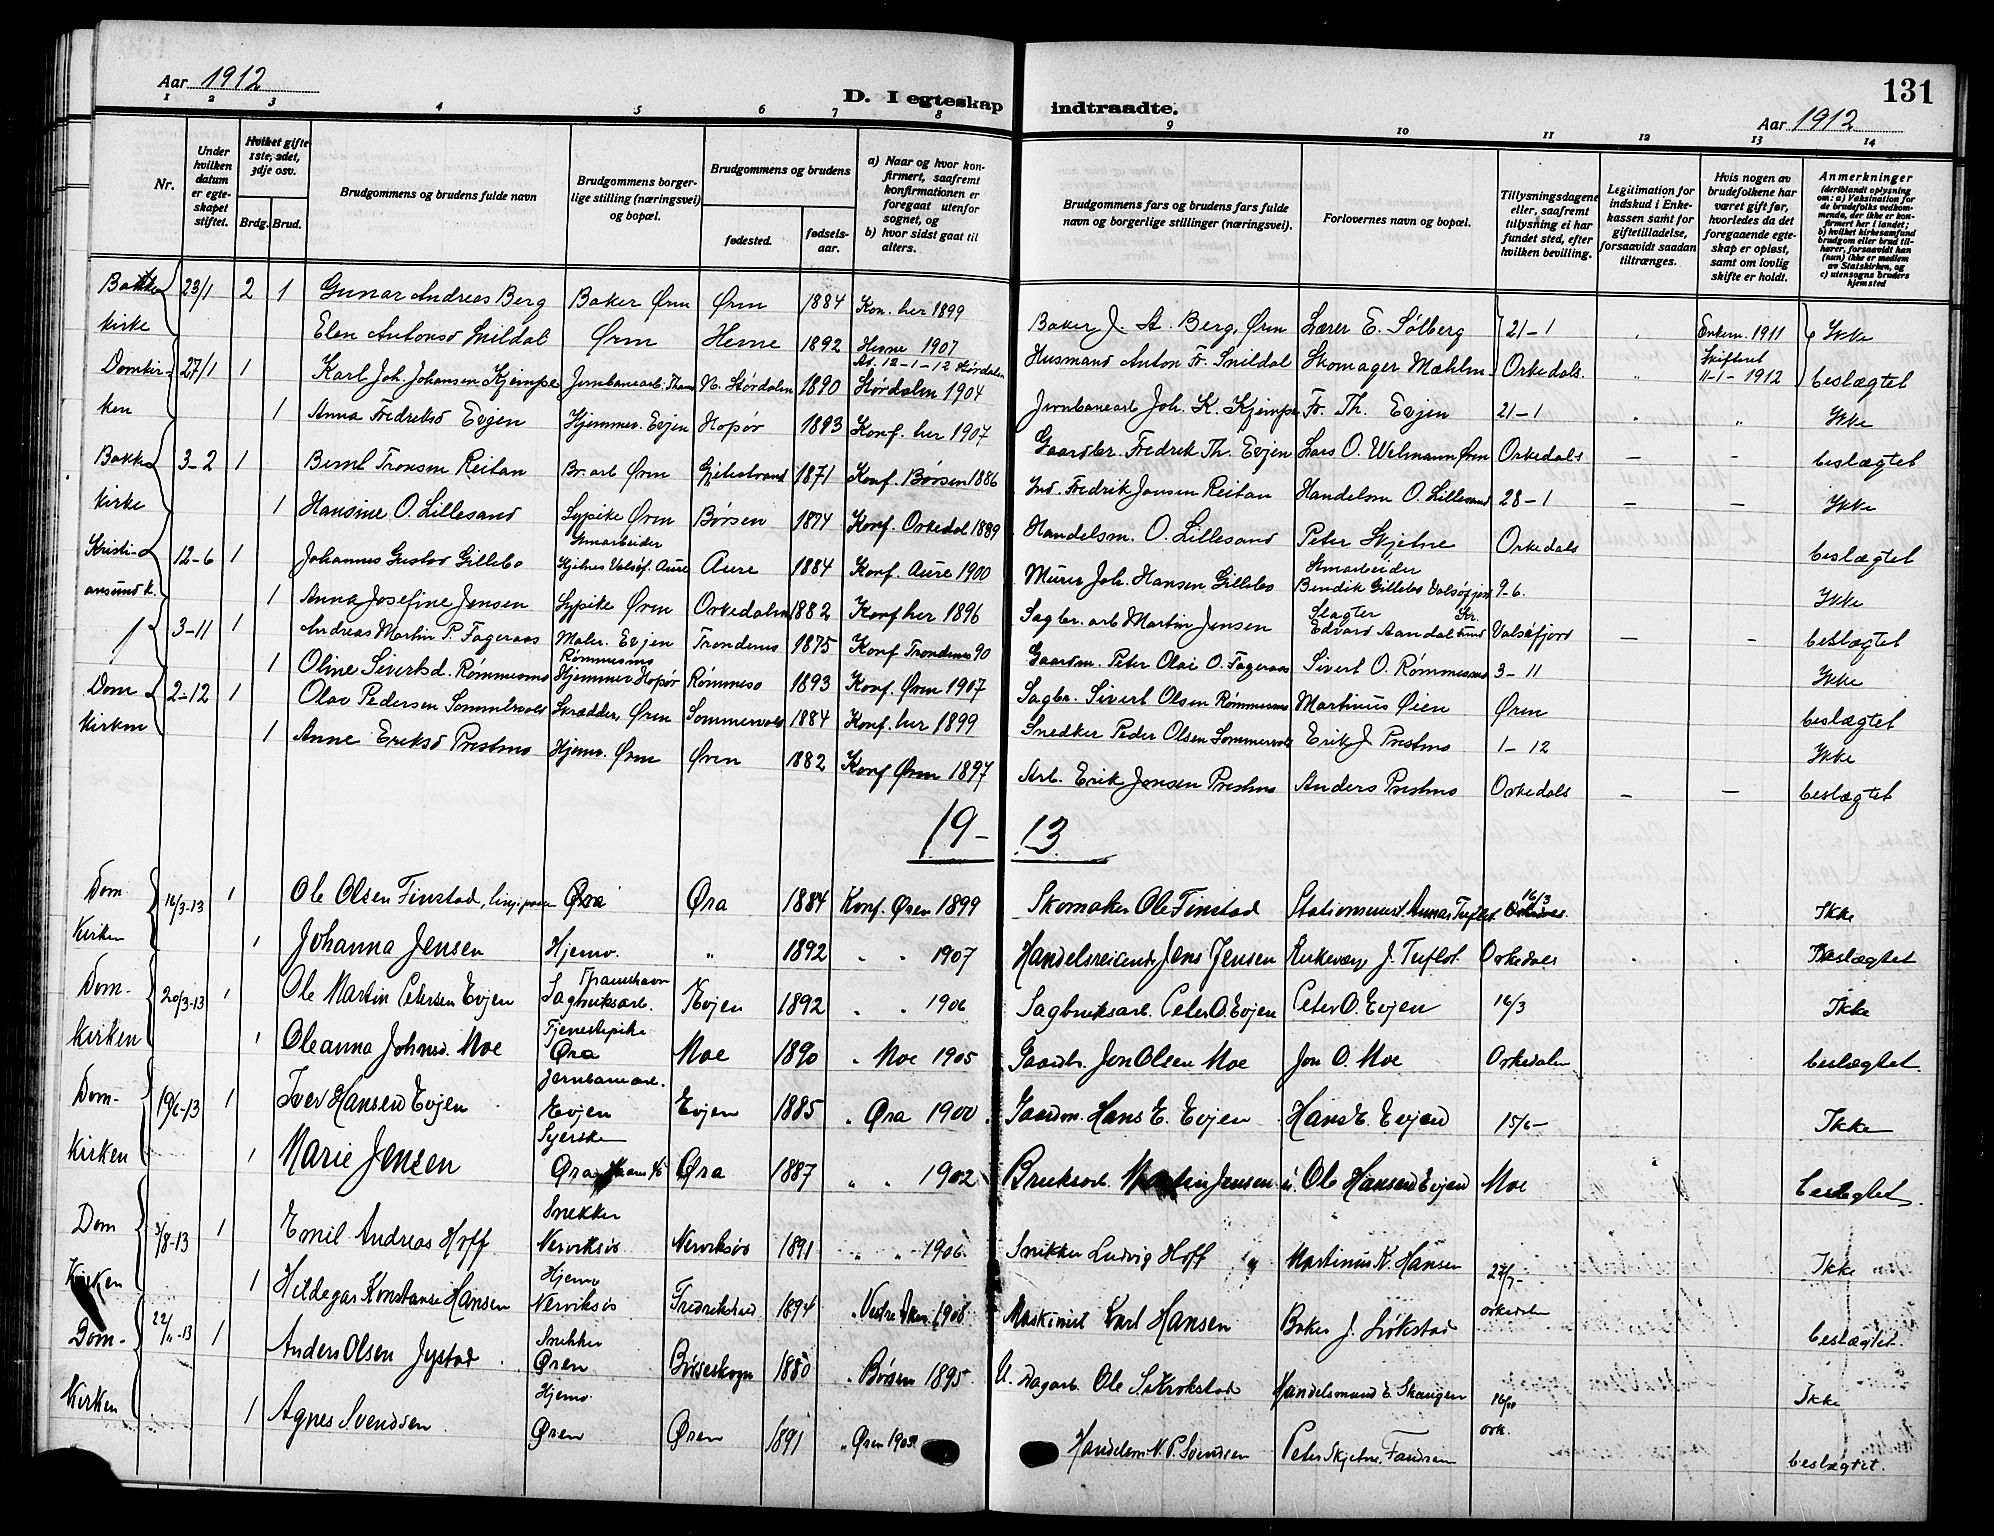 Aar 1912
D. I egteskap indtraadte.
131
Aar 1912
1 2 3 4 5 6 7 8 9 10 11 12 13 14
Nr.
Under hvilken datum er egteskapet stiftet.
Hvilket gifte 1ste, 2det, 3dje osv.
Brdg. Brud.
Brudgommens og brudens fulde navn
Brudgommens borgerlige stilling (næringsvei) og bopæl.
Brudgommens og brudens
fødested.
fødselsaar.
a) Naar og hvor konfirmert, saafremt konfirmationen er foregaat utenfor sognet, og
b) hvor sidst gaat til alters.
Brudgommens fars og brudens fars fulde navn og borgerlige stillinger (næringsvei).
Forlovernes navn og bopæl.
Tillysningsdagene eller, saafremt tillysning ei har fundet sted, efter hvilken bevilling.
Legitimation for indskud i Enkekassen samt for giftetilladelse, forsaavidt saadan tiltrænges.
Hvis nogen av brudefolkene har været gift før, hvorledes da det foregaaende egteskap er opløst, samt om lovlig skifte er holdt.
Anmerkninger (deriblandt oplysning om: a) Vaksination for de brudefolks vedkommende, der ikke er konfirmert her i landet; b) hvilket kirkesamfund brudgom eller brud tilhører, forsaavidt han (hun) ikke er medlem av Statskirken, og c) utensogns bruders hjemsted
Bakke 23/1 2 1 Gunar Andreas Berg Baker Ørm Ørm 1884 Kon. her 1899 Baker J. A. Berg, Ørm Lærer E. Sølberg 21-1 Enkem. 1911 Ikke
kirke Elen Antonsd Snildal Ørm Hemne 1892 Hemne 1907 Husmand Anton Fr. Snildal Skomager Mæhlm Orkedals. Skiftent 11-1-1912 beslægtet
Domkir- 27/1 1 Karl Joh. Johansen Kjempe Jernbanearb. N. Stördalen 1890 At 12-1-12 Stördalen Stördalm 1904 Jernbanearb Joh. K. Kjempe Fr. Th. Evjen 21-1 Ikke
ken 1 Anna Fredriksd Evjen Hjemmev. Evjen Hopsör 1893 Konf. her 1907 Gaardbr. Fredrik Th. Evjen Lars O. Welmann Ørm Orkedals beslægtet
Bakke 3-2 1 Bernt Tronsen Reitan Br. arb Ørm Gjetnstrand 1871 Konf. Børsen 1886 Ind. Fredrik Jansen Reitan Handelsm O. Lillesand 28-1 Ikke
kirke 1 Hansine O. Lillesand Sypike Ørm Børsen 1874 Konf. Orkedal 1889 Handelsm. O. Lillesand Peter Skjetne Orkedals beslægtet
Kristi- 12-6 1 Johannes Gustav Gillebo Stenarbeider Valsöf. Aure Aure 1884 Konf. Aure 1900 Murer Joh. Hansen Gillebo Stenarbeider Bendik Gillebo Valsöfjor 9-6. Ikke
ansund k. 1 Anna Josefine Jensen Sypike Ørm Orkedalen 1882 Konf her 1896 Sagbr. arb Martin Jensen Slagter Edvard Aandal Kr. sund Valsöfjord beslægtet
3-11 1 Andreas Martin P. Fageraas Maler. Evjen Trondenes 1875 Konf Trondenes 90 Gaardm. Peter Olai O. Fageraas Sivert O. Rømmesmo 3-11 Ikke
1 Oline Sivertsd. Rømmesmo Rømmesmo Hjemmev Hopsör Rømmeso 1893 Konf. Ørm 1907 Sagbr. Sivert Olsen Rømmesmo Martinus Øien Øren beslægtet
Dom 2-12 1 Olav Pedersen Sommervold Skrædder, Ørm Sommervold 1884 Konf. her 1899 Snedker Peder Olsen Sommervold Erik J Prestmo 1-12 Ikke
kirken 1 Anne Eriksd Prestmo Hjemv. Ørm Øren 1882 Konf Ørm 1897 Arb. Erik Jonsen Prestmo Anders Prestmo Orkedals beslægtet
19-13
Dom 16/3-13 1 Ole Olsen Finstad, Øra Øra 1884 Konf. Øren 1899 Skomaker Ole Finstad Stationsmest. Annas Tuflot 16/3 Ikke
Kirken 1 Johanna Jensen Hjemv. " 1892 " " 1907 Handelsreisende Jens Jensen Kirkeværg J. Tuflot Orkedals Beslægtet
Dom- 20/3-13 1 Ole Martin Petersen Evjen Thamshavn Sagbruksarb. Evjen 1892 " " 1906 Sagbruksarb. Peter O. Evjen Peter O. Evjen 16/3 Ikke
Kirken 1 Oleanna Johnsd. Moe Tjenestepike Øra Moe 1890 " Moe 1905 Gaardbr. Jon Olsen Moe Jon O. Moe Orkedalen beslægtet.
Dom- 19/6-13 1 Iver Hansen Evjen Jernbanearb. Evjen Evjen 1885 " Øra 1900 Gaardm. Hans E. Evjen Hans E. Evjen 15/6- Ikke
Kirken 1 Marie Jensen Syerske Øra Øra 1887 " " 1902 Bruksarb. Martin Jensen Ole Hansen Evjen Moe beslegtet.
Dom 3/8-13 1 Emil Andreas Hoff Snekker Nerviksös Nerviksös 1891 " " 1906. Snikker Ludvig Hoff Martinus K. Hansen 27/7- Ikke
Kirken 1 Hildegar Konstanse Hansen Hjemv Nerviksös Fredrikstad 1894 " Vestre Aker 1908 Maskinist Karl Hansen Baker J. Løkstad Orkedalen beslegtet.
Dom- 22/11-13 1 Anders Olsen Jystad Snekker Øren Börseskogn 1880 " Børsen 1895 U. Dagarb. Ole S. Krokstad Handelsmand E. Skaugen 16/11 Ikke
Kirken 1 Agnes Svendsen Hjemv. Øren Øren 1891 " Øren 1905. Handelsm. N. P. Svendsen Peter Skjetne, Fandrem Ork. beslægtet.